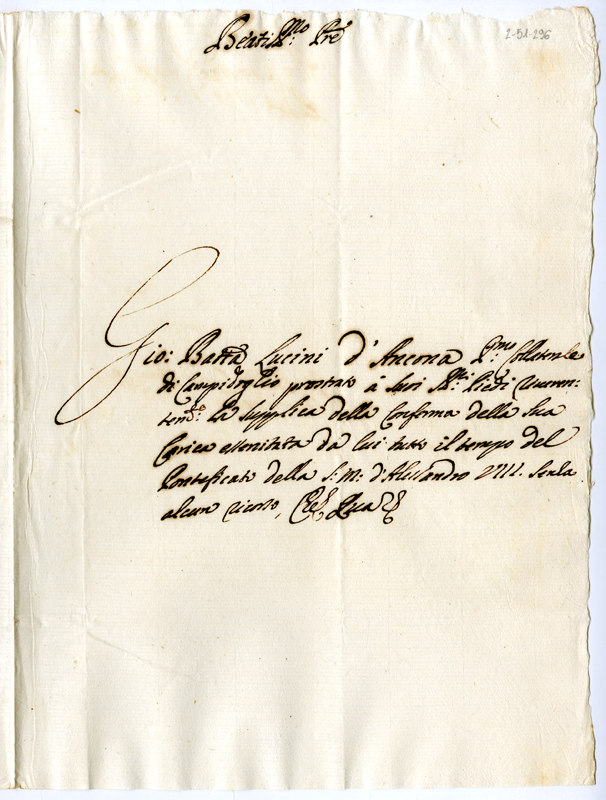 2-51-296
Beatiss.mo Pre
Gio: Batta Lucini d'Ancona P.mo Collaterale
di Campidoglio prostrato à suoi SS.mi Piedi riveren:
tem.te La supplica della Conferma della sua
Carica essercitata da lui tutto il tempo del
Pontificato della S: M: d'Alessandro VIII. senza
alcun ricorso, Che